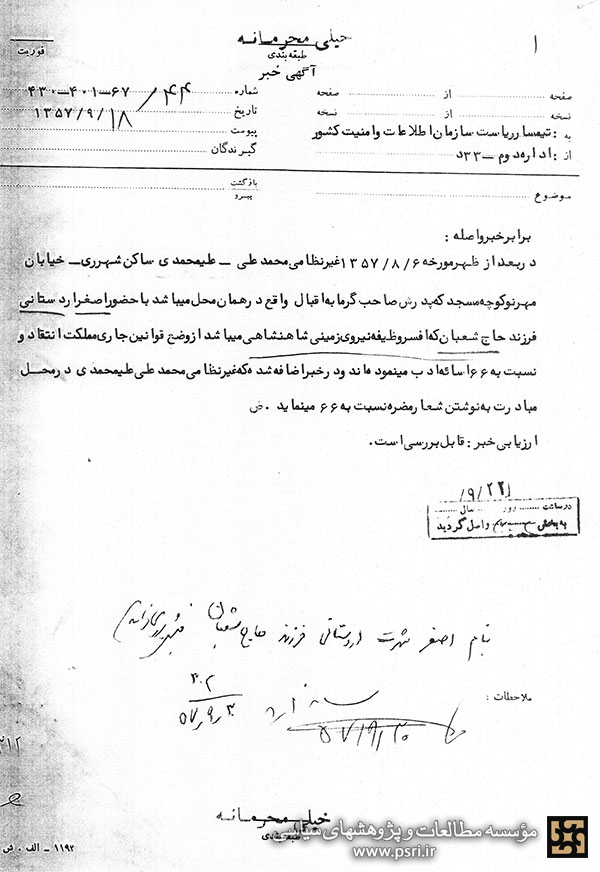 خیلی محرمانه
طبقه‌بندی
آگهی خبر
فوریت
صفحه از صفحه شماره ۴۴/ ۶۷-۴۰۱-۴۳۰
نسخه از نسخه تاریخ ۱۳۵۷/۹/۱۸
به : تیمسار ریاست سازمان اطلاعات و امنیت کشور پیوست
از : اداره دوم – ۳۳د گیرندگان
موضوع بازگشت
پیرو
برابر خبر واصله :
در بعد از ظهر مورخه ۱۳۵۷/۸/۶ غیرنظامی محمدعلی – علیمحمدی ساکن شهرری – خیابان
مهرنو کوچه مسجد که پدرش صاحب گرمابه اقبال واقع در همان محل میباشد با حضور اصغر اردستانی
فرزند حاج شعبان که افسر وظیفه نیروی زمینی شاهنشاهی میباشد از وضع قوانین جاری مملکت انتقاد و
نسبت به ۶۶ اسائه ادب مینموده‌اند و در خبر اضافه شده که غیرنظامی محمدعلی علیمحمدی در محل
مبادرت به نوشتن شعار مضره نسبت به ۶۶ مینماید . ض
ارزیابی خبر : قابل بررسی است .
۹/۲۲/
در ساعت روز سال
به بخش واصل گردید
بنام اصغر شهرت اردستانی فرزند حاج شعبان
ملاحظات :
سابقه ندارد
۳۰۲
۵۷/۹/۳۰
خیلی محرمانه
طبقه‌بندی
۱۱۹۲ – الف . ش
۳۱۲
مؤسسه مطالعات و پژوهشهای سیاسی
www.psri.ir